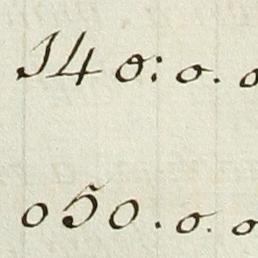 140:0.0
050.0.0